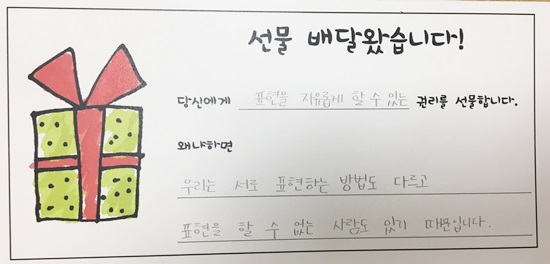 선물 배달왔습니다!
당신에게 표현을 자유롭게 할 수 있는 권리를 선물합니다.
왜냐하면
우리는 서로 표현하는 방법도 다르고
표현을 할 수 없는 사람도 있기 때문입니다.